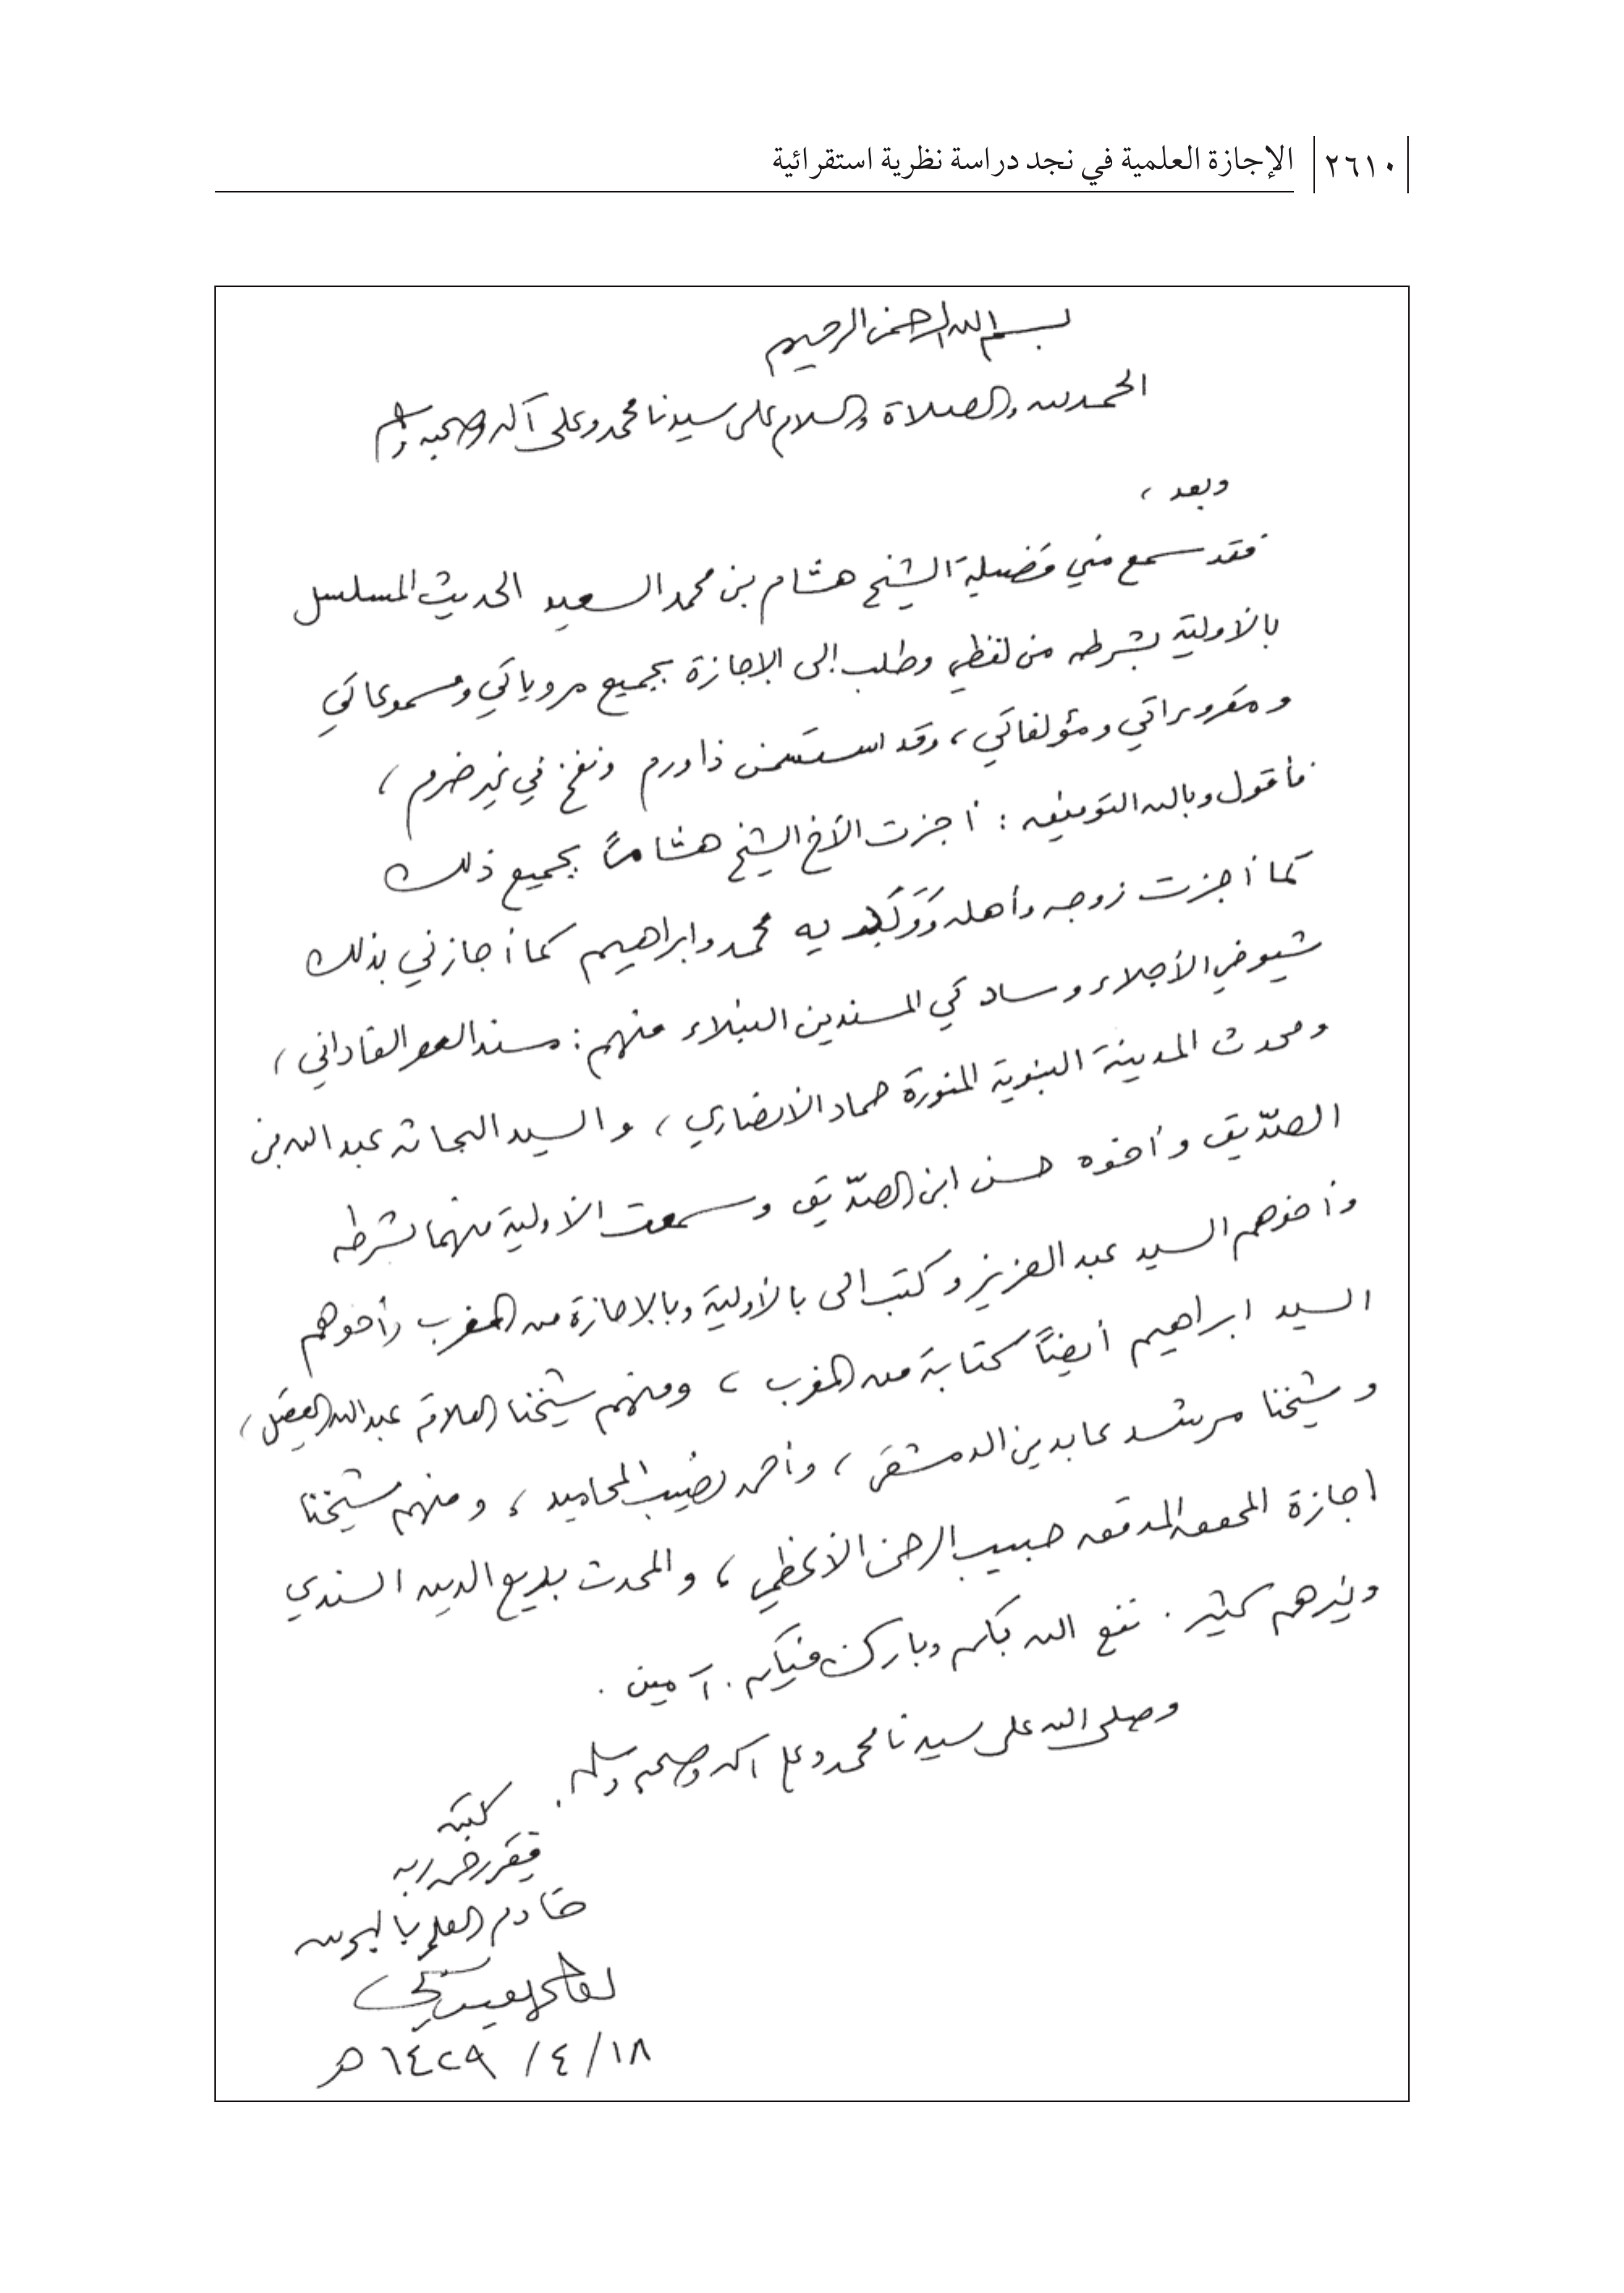 ٢٦١٠ الإجازة العلمية في نجد دراسة نظرية استقرائية
بسم الله الرحمن الرحيم
الحمد لله والصلاة والسلام على سيدنا محمد وعلى آله وصحبه وسلم
وبعد ،
فقد سمع مني فضيلة الشيخ هشام بن محمد السعيد الحديث المسلسل
بالأولية بشرطه من لفظي وطلب إلى الإجازة بجميع مروياتي ومسموعاتي
ومقروراتي ومؤلفاتي ، وقد استسمن ذا ورم ونفخ في غير ضرم ،
فأقول وبالله التوفيق : أجزت الأخ الشيخ هشاماً بجميع ذلك
كما أجزت زوجه وأهله وَوَلَديه محمد وابراهيم كما أجازني بذلك
شيوخي الأجلاء وساداتي المسندين النبلاء منهم : مسند العصر الفاداني ،
ومحدث المدينة النبوية المنورة حماد الأنصاري ، والسيد البحاثة عبد الله بن
الصدّيق وأخوه حسن ابن الصدّيق وسمعت الأولية منهما بشرطه
وأخوهم السيد عبد العزيز وكتب الى بالأولية وبالإجازة من المغرب وأخوهم
السيد ابراهيم أيضاً كتابة من المغرب ، ومنهم شيخنا العلامة عبد الله
وشيخنا مرشد عابدين الدمشقي ، وأحمد نصيب المحاميد ، ومنهم شيخنا
اجازة المحقق المدقق حبيب الرحمن الأعظمي ، والمحدث بديع الدين السندي
وغيرهم كثير . نفع الله بكم وبارك فيكم . آمين .
وصلى الله على سيدنا محمد وعلى آله وصحبه وسلم .
كتبه
فقير رحمة ربه
خادم العلم بالبحرين
١٨/ ٤/ ١٤٢٩ هـ